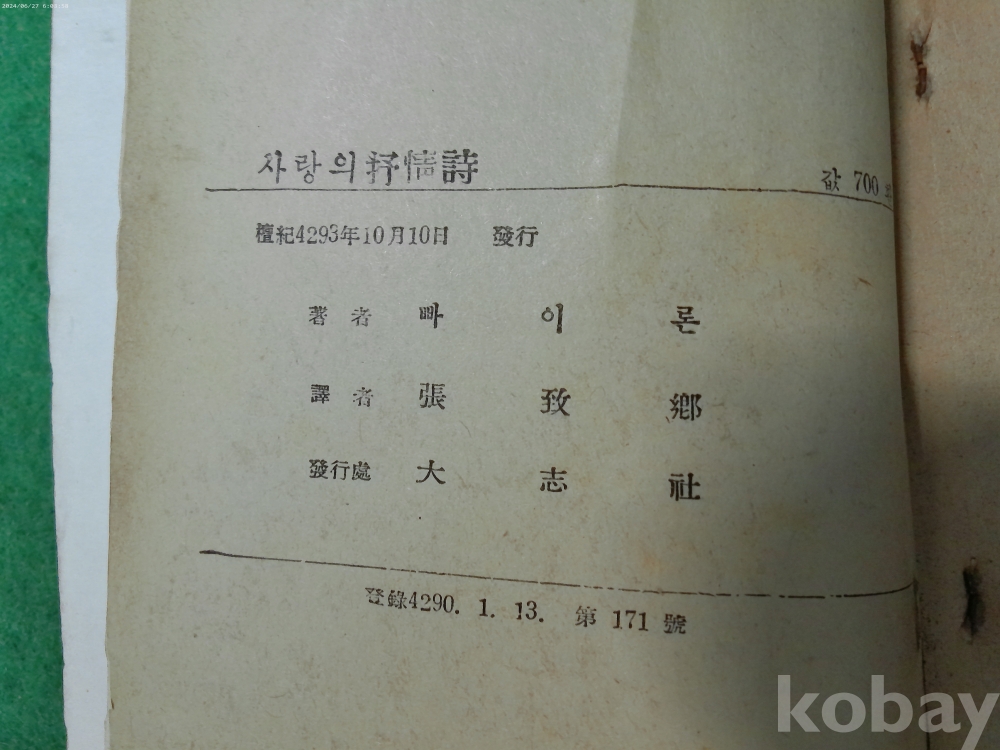 2024/06/27
사랑의 抒情詩
값 700
檀紀4293年10月10日 發行
著者 빠이론
譯者 張致鄕
發行處 大志社
登錄4290. 1. 13. 第 171 號
kobay